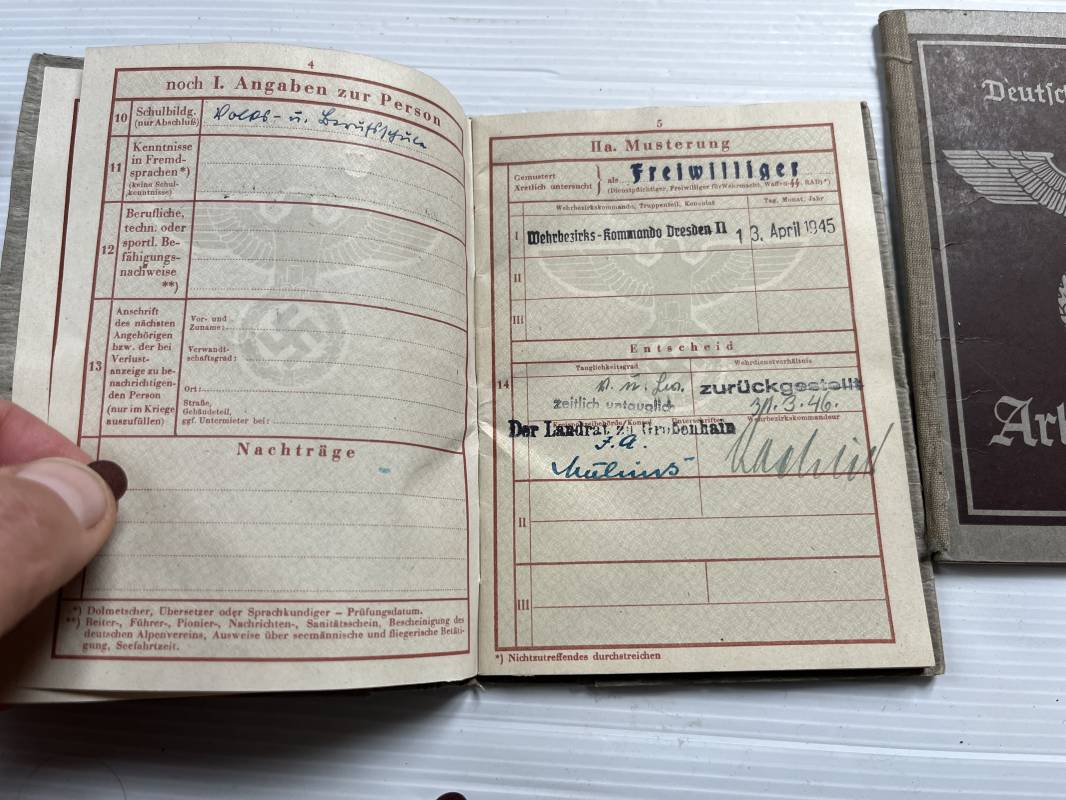 4
noch I. Angaben zur Person
10 Schulbildg.
(nur Abschluß)
Volks- u. Berufsschule
11 Kenntnisse
in Fremd-
sprachen*)
(keine Schul-
kenntnisse)
12 Berufliche,
techn. oder
sportl. Be-
fähigungs-
nachweise
**)
13 Anschrift
des nächsten
Angehörigen
bzw. der bei
Verlust-
anzeige zu be-
nachrichtigen-
den Person
(nur im Kriege
auszufüllen)
Vor- und
Zuname:
Verwandt-
schaftsgrad:
Ort:
Straße,
Gebäudeteil,
ggf. Untermieter bei:
Nachträge
*) Dolmetscher, Übersetzer oder Sprachkundiger – Prüfungsdatum.
**) Reiter-, Führer-, Pionier-, Nachrichten-, Sanitätsschein, Bescheinigung des
deutschen Alpenvereins, Ausweise über seemännische und fliegerische Betäti-
gung, Seefahrtzeit.
5
IIa. Musterung
Gemustert
Ärztlich untersucht
als Freiwilliger
(Dienstpflichtiger, Freiwilliger für Wehrmacht, Waffen-SS, RAD)*)
Wehrbezirkskommando, Truppenteil, Konsulat
Tag, Monat, Jahr
I Wehrbezirks-Kommando Dresden II 13. April 1945
II
III
Entscheid
14
Tauglichkeitsgrad
Wehrdienstverhältnis
zeitlich untauglich
zurückgestellt
31.3.46.
Unterschriften
Wehrbezirkskommandeur
Der Landrat zu Großenhain
I. A.
II
III
*) Nichtzutreffendes durchstreichen
Deutsch
Ar